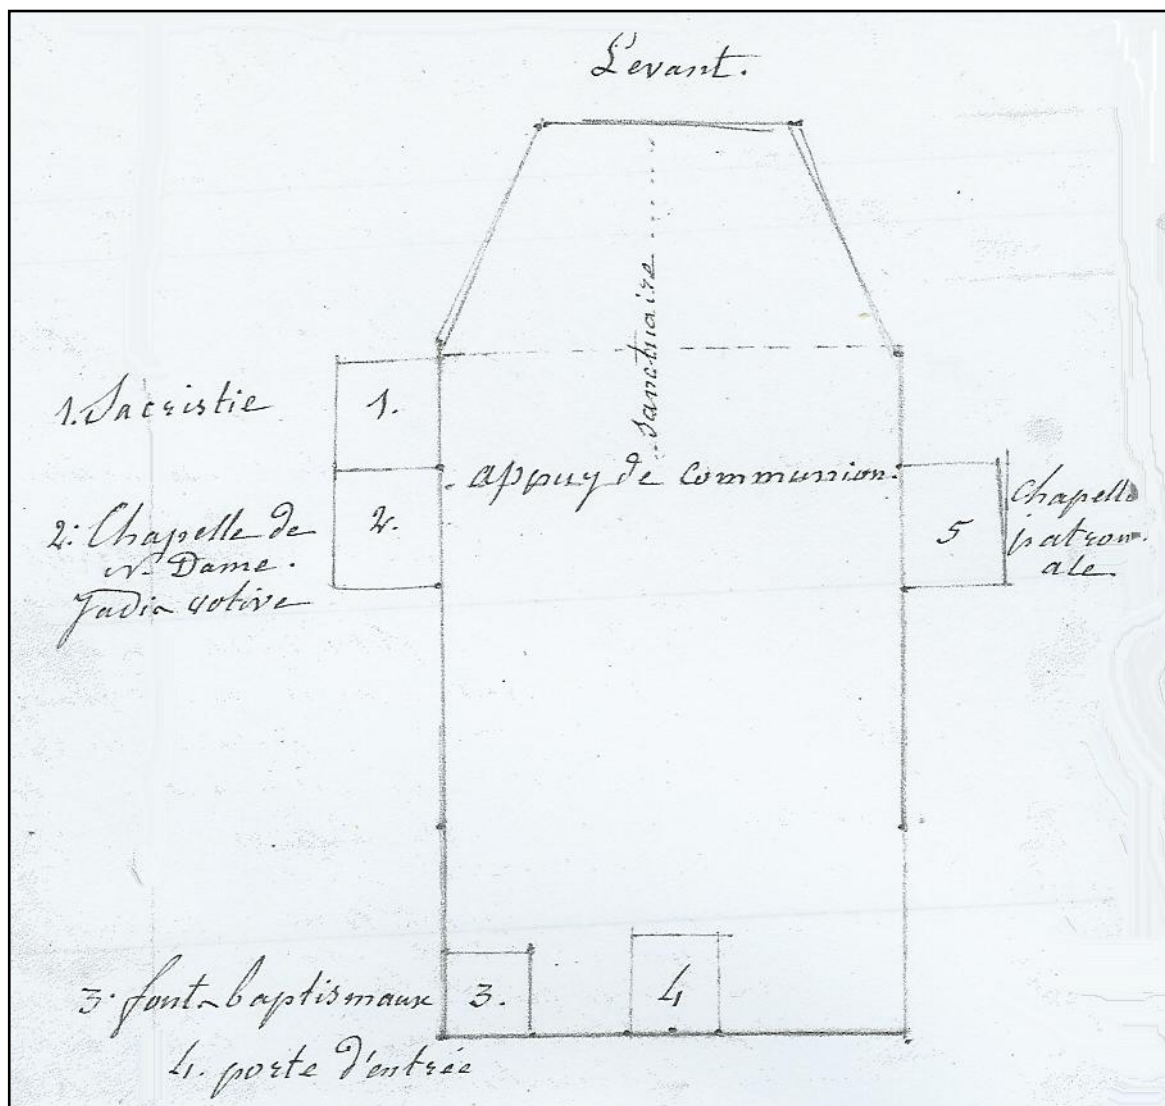 Levant.
Sanctuaire
1. Sacristie
1.
appuy de communion.
2: Chapelle de
N. Dame.
Jadis votive
2.
5
Chapelle
patron-
ale.
3. fonts baptismaux
3.
4
4. porte d'entrée